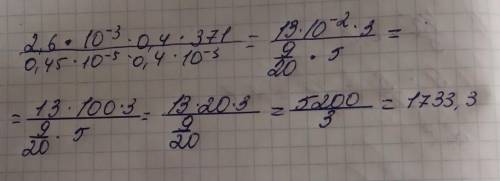 2,6 · 10⁻³ · 0,4 · 371 / 0,45 · 10⁻⁵ · 0,4 · 10⁻³ = 13 · 10⁻² · 3 / 9/20 · 5 =
= 13 · 100 · 3 / 9/20 · 5 = 13 · 20 · 3 / 9/20 = 5200 / 3 = 1733,3